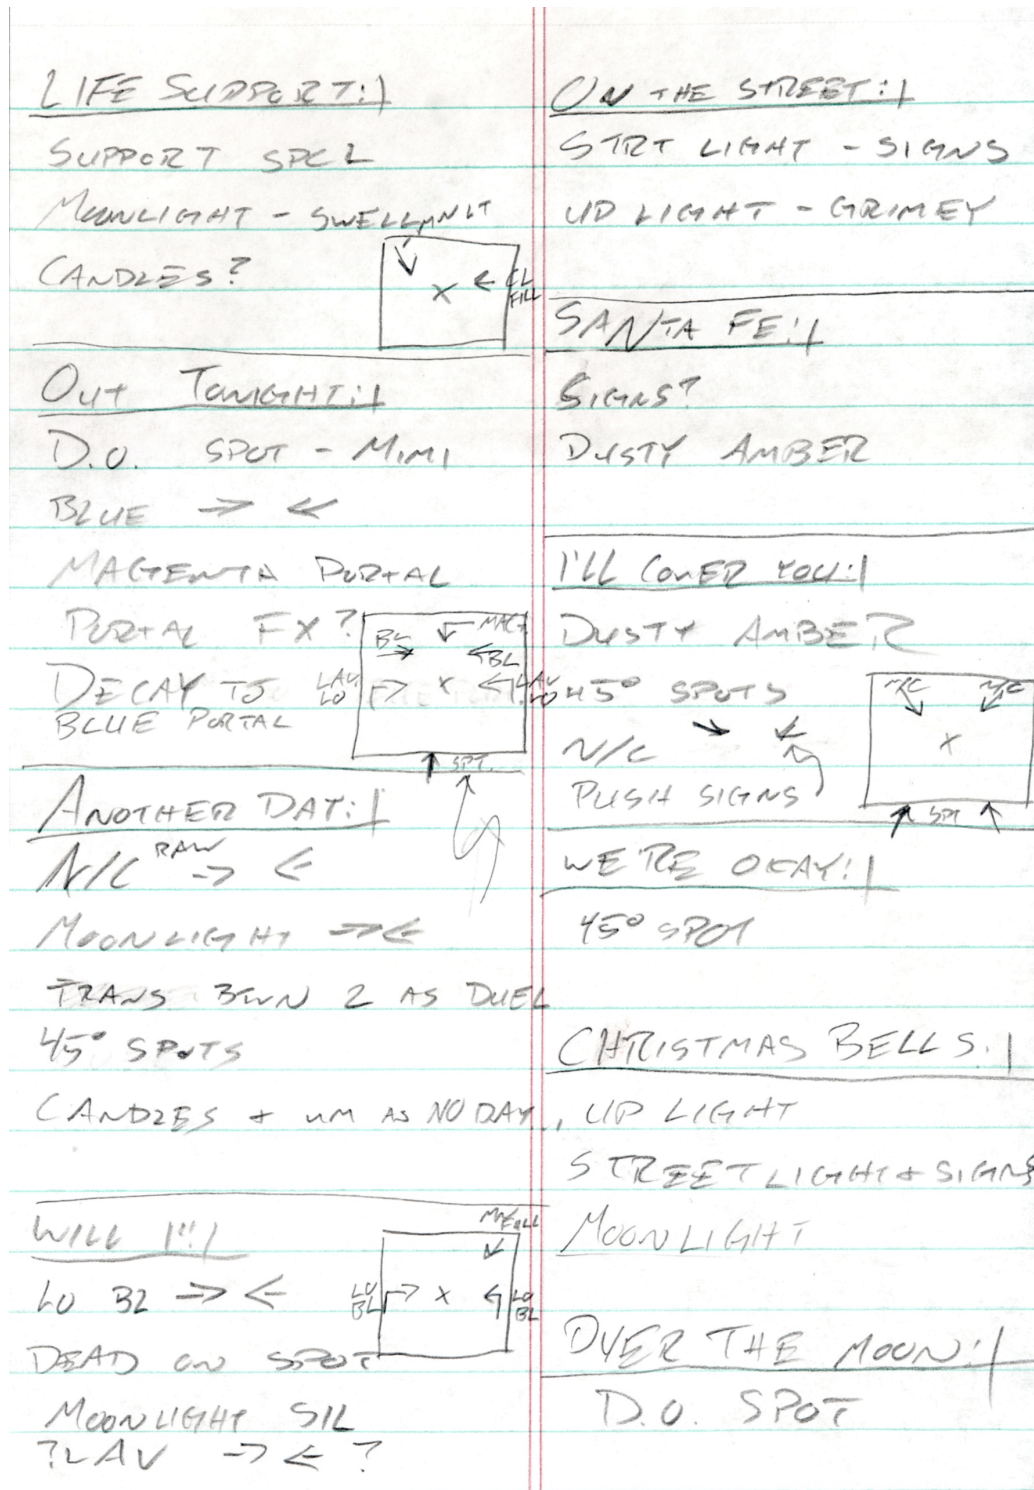 LIFE SUPPORT:
SUPPORT SPCL
MOONLIGHT - SWELL MNLT
CANDLES?
CL
FILL
OUT TONIGHT:
D.O. SPOT - MIMI
BLUE → ←
MAGENTA PORTAL
PORTAL FX?
DECAY TO
BLUE PORTAL
BL
MAG
BL
LAV
LO
LAV
LO
SPT.
ANOTHER DAY:
N/C RAW → ←
MOONLIGHT → ←
TRANS BTWN 2 AS DUEL
45° SPOTS
CANDLES + UM AS NO DAY
WILL I!:
LO BL → ←
DEAD ON SPOT
MOONLIGHT SIL
?LAV → ← ?
LO
BL
LO
BL
ON THE STREET:
STRT LIGHT - SIGNS
UP LIGHT - GRIMEY
SANTA FE:
SIGNS?
DUSTY AMBER
I'LL COVER YOU:
DUSTY AMBER
45° SPOTS
N/C
PUSH SIGNS
N/C
N/C
SPT
WE'RE OKAY:
45° SPOT
CHRISTMAS BELLS:
UP LIGHT
STREETLIGHT + SIGNS
MOONLIGHT
OVER THE MOON:
D.O. SPOT